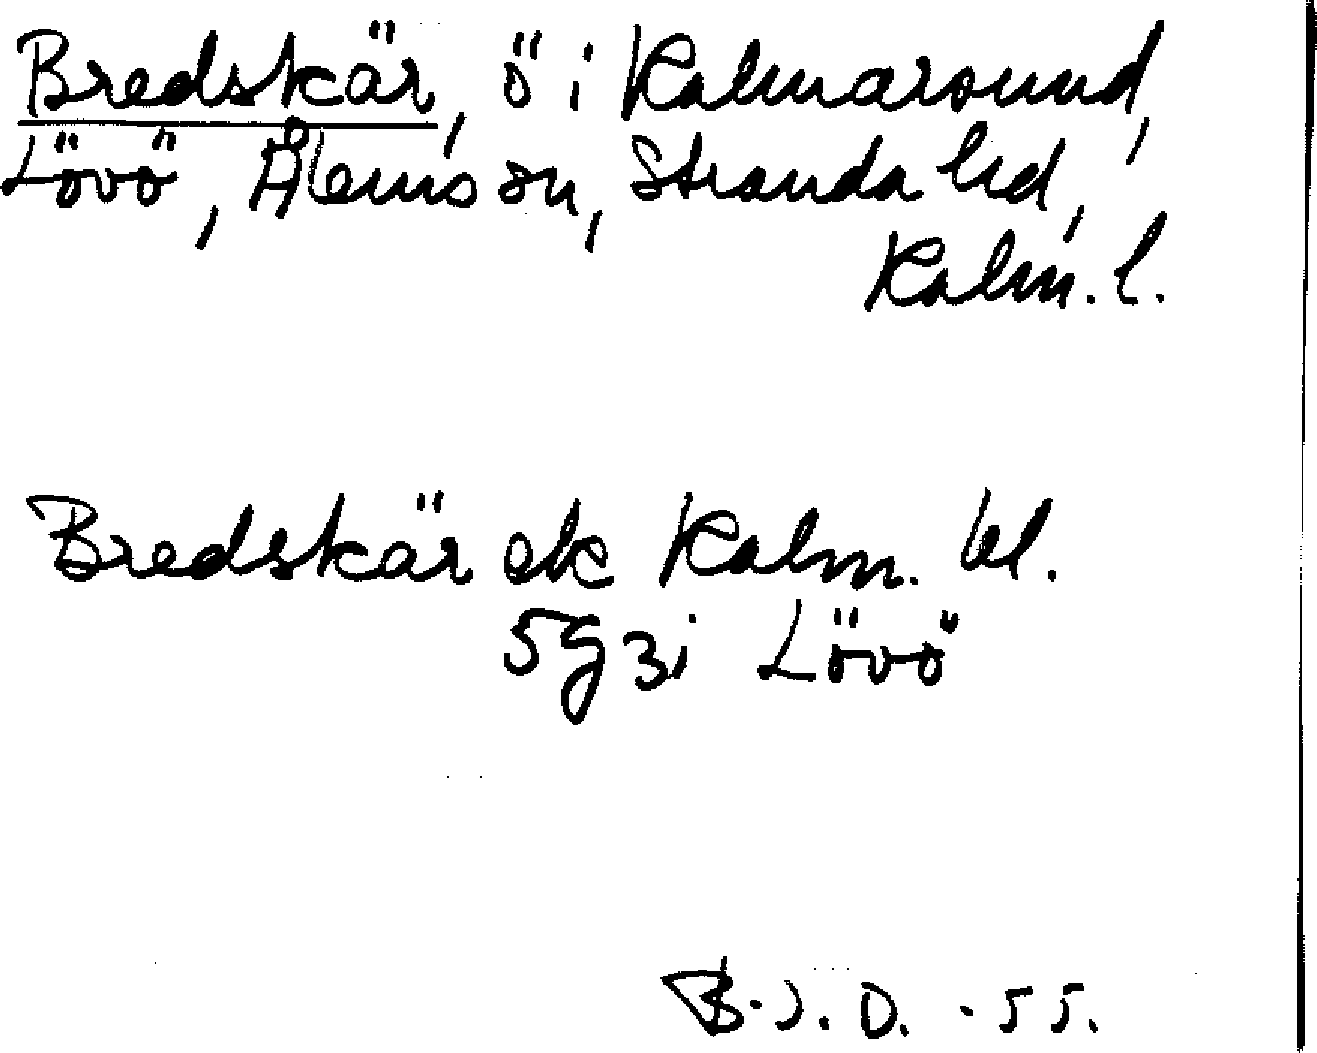 Bredskär, ö i Kalmarsund,
Lövö, Ålems sn, Stranda hd,
Kalm. l.
Bredskär ek Kalm. bl.
5g3i Lövö
B.J.D. -55.